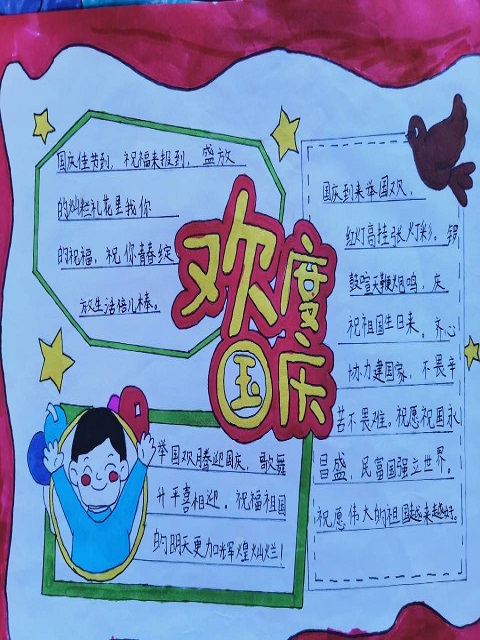 国庆佳节到，祝福来报到，盛放
的灿烂礼花里我你
的祝福，祝你青春绽
放生活倍儿棒。
欢度
国庆
国庆到来举国欢，
红灯高挂张灯彩。锣
鼓喧天鞭炮鸣，庆
祝祖国生日来。齐心
协力建国家，不畏辛
苦不畏难。祝愿祝国永
昌盛，民富国强立世界。
祝愿伟大的祖国越来越好。
举国欢腾迎国庆，歌舞
升平喜相迎，祝福祖国
的明天更加辉煌灿烂！